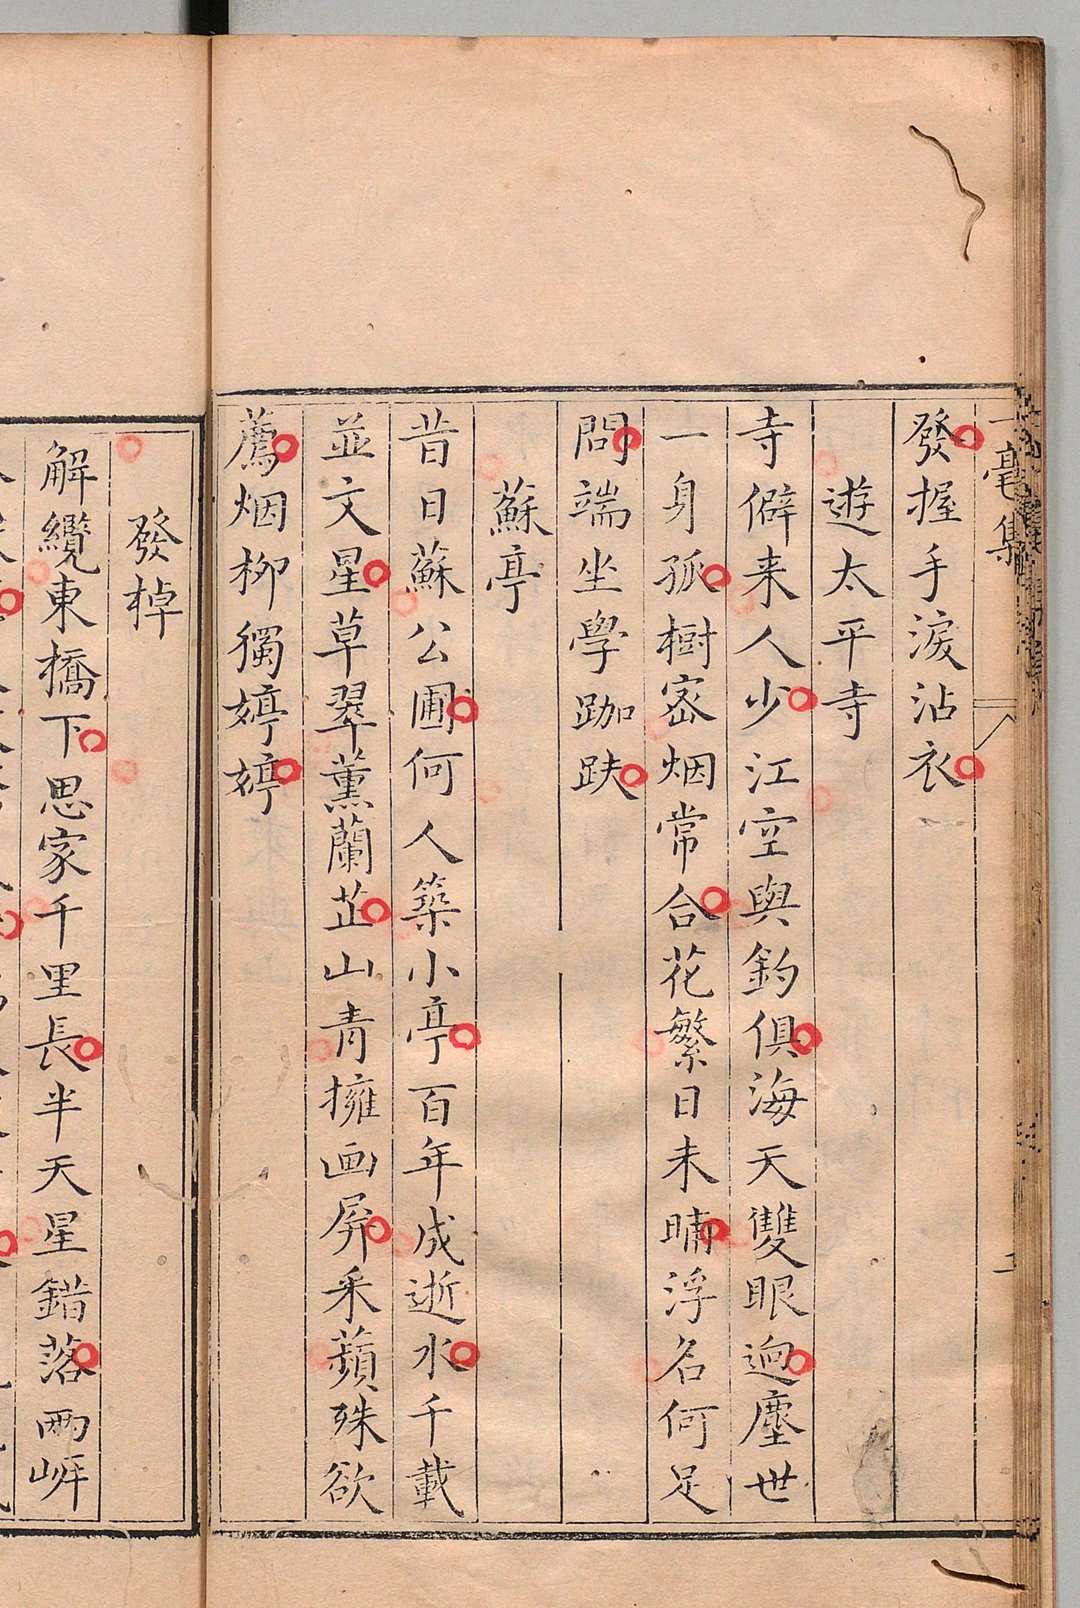 一毫集
二
發握手淚沾衣
遊太平寺
寺僻来人少江空與釣俱海天雙眼逈塵世
一身孤樹宻烟常合花繁日未晡浮名何足
問端坐學跏趺
蘇亭
昔日蘇公圃何人築小亭百年成逝水千載
並文星草翠薰蘭芷山青擁画屏采蘋殊欲
薦烟柳獨婷婷
發棹
解纜東橋下思家千里長半天星錯落兩岍